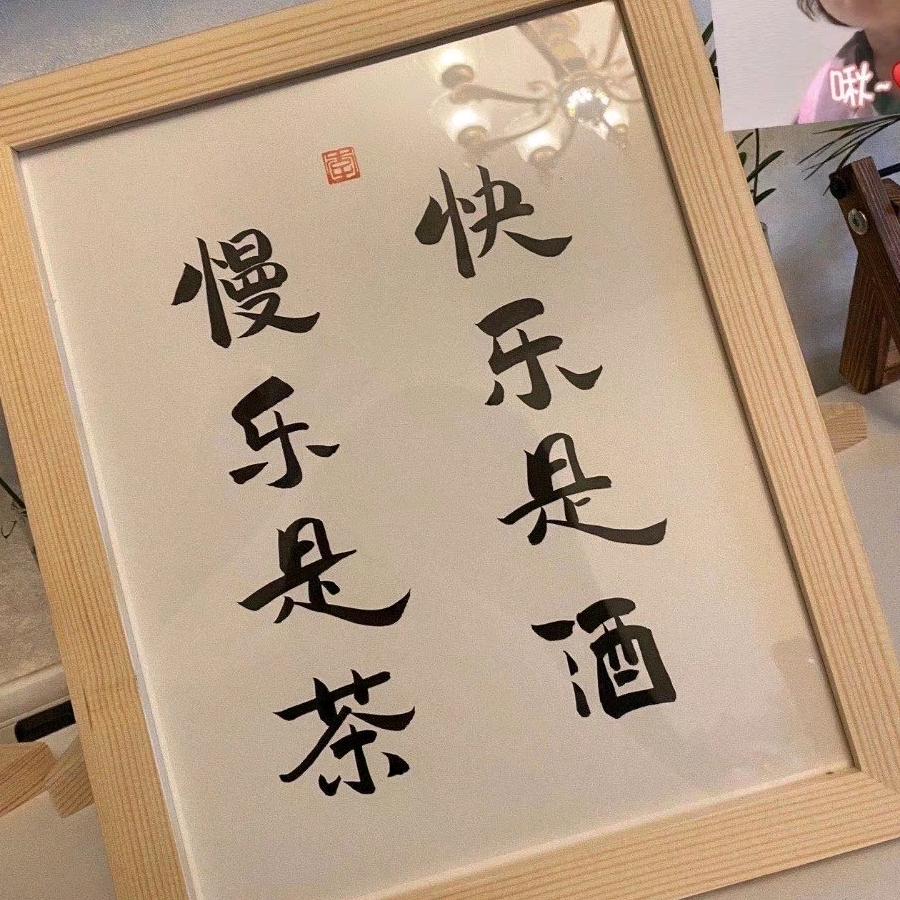 快乐是酒
慢乐是茶
啾~